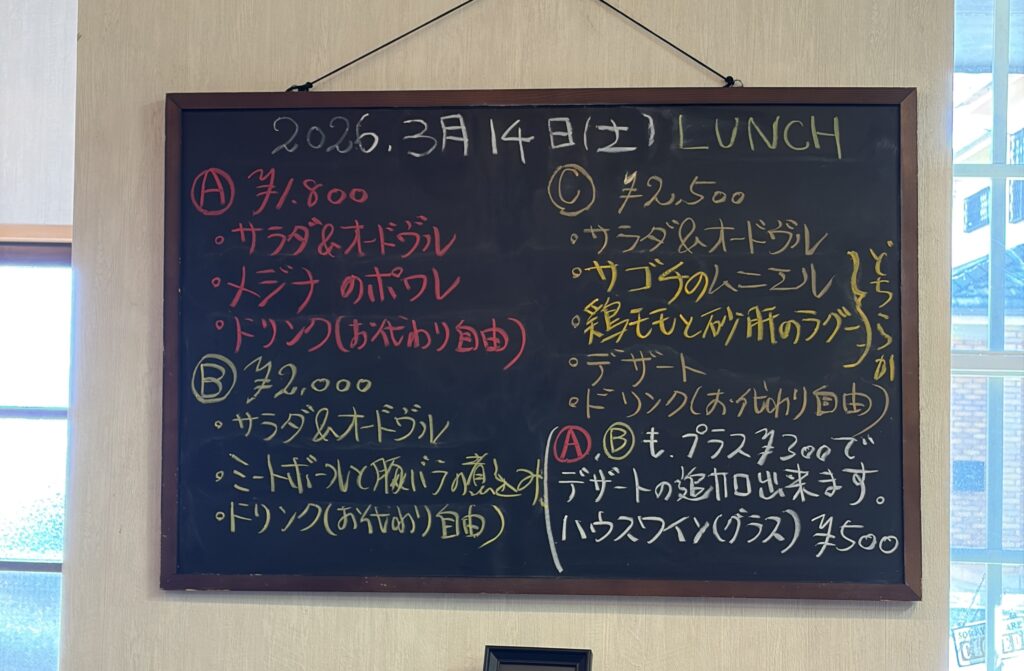 2026.3月14日(土) LUNCH
Ⓐ ¥1.800
・サラダ&オードヴル
・メジナのポワレ
・ドリンク(お代わり自由)
Ⓑ ¥2.000
・サラダ&オードヴル
・ミートボールと豚バラの煮込み
・ドリンク(お代わり自由)
Ⓒ ¥2,500
・サラダ&オードヴル
・サゴチのムニエル
・鶏モモと砂肝のラグー
どちらか
・デザート
・ドリンク(お代わり自由)
Ⓐ,Ⓑも.プラス¥300で
デザートの追加出来ます。
ハウスワイン(グラス) ¥500